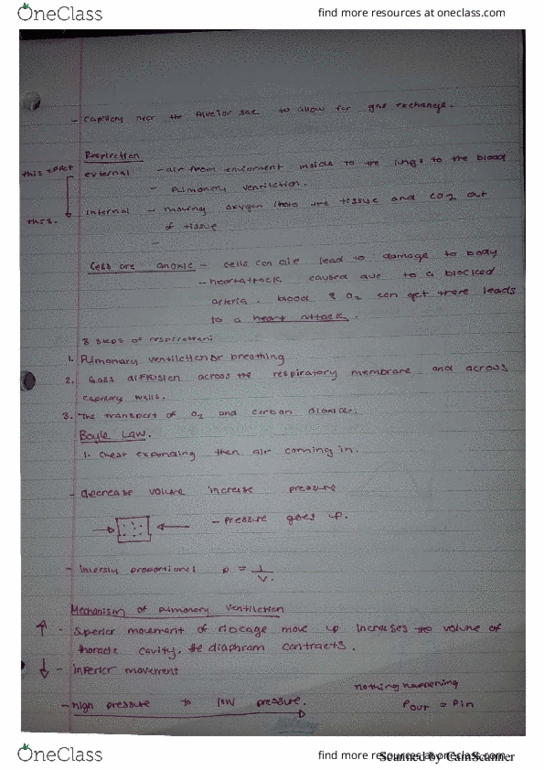 OneClass
find more resources at oneclass.com
- Capillary near the Alvelor sac to allow for gas exchange.
Respiration
this effect
external - air from enviorment inside to the lungs to the blood
- Pulmonary ventilation.
this.
internal - moving oxygen into the tissue and CO2 out
of tissue
-
Cells are anoxic - cells can die lead to damage to body
- heartattack caused due to a blocked
arteria. blood & O2 can get there leads
to a heart attack.
3 steps of respiration:
1. Pulmonary ventilation or breathing
2. Gass diffusion across the respiratory membrane and across
capillary walls.
3. The transport of O2 and carbon dioxide.
Boyle Law.
1. Chest expanding then air comming in.
- decrease volume increase pressure
- Pressure goes up.
- inversly proportional P = 1/V.
Mechanism of pulmonary ventilation
- Superior movement of ribcage move up increases the volume of
thoracic cavity, the diaphram contracts.
- inferior movement
nothing happening
- high pressure to low pressure.
Pout = Pin
OneClass
find more resources at oneclass.com
Scanned by CamScanner